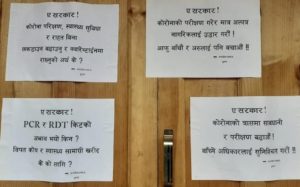 ए सरकार!
कोरोना परिक्षण, स्वास्थ्य सुविधा
र राहत विना
लकडाउन बढाउनु र क्वारेन्टाईनमा
राख्नुको अर्थ के ?
ए सरकार!
कोरोनाको परिक्षण गरेर मात्र अलपत्र
नागरिकलाई उद्धार गरौं !
आफू बाँचौं र अरुलाई पनि बचाऔं !!
ए सरकार!
PCR र RDT किटको
अभाव भयो किन ?
विपत कोष र स्वास्थ्य सामाग्री खरीद
के को लागि ?
ए सरकार!
कोरोनाको त्रासमा सावधानी
र परिक्षण बढाऔं!
बाँच्ने अधिकारलाई सुनिश्चित गरौं !!